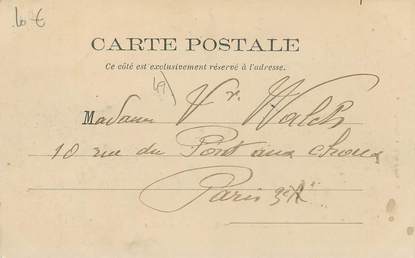 10 €
CARTE POSTALE
Ce côté est exclusivement réservé à l'adresse.
49)
Madame Vve. Walch
10 rue du Pont aux choux
Paris 3e